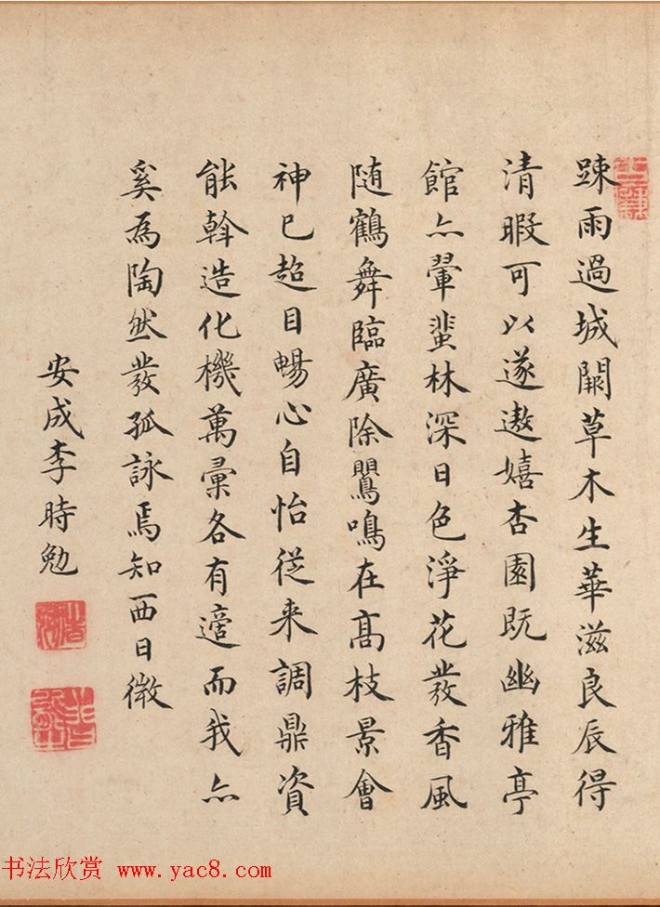 踈雨過城闕草木生華滋良辰得
清暇可以遂遨嬉杏園既幽雅亭
館亦翬蜚林深日色淨花發香風
随鶴舞臨廣除鸎鳴在髙枝景會
神已超目暢心自怡從来調鼎資
能斡造化機萬彙各有適而我亦
奚為陶然發孤詠焉知西日微
安成李時勉
书法欣赏 www.yac8.com